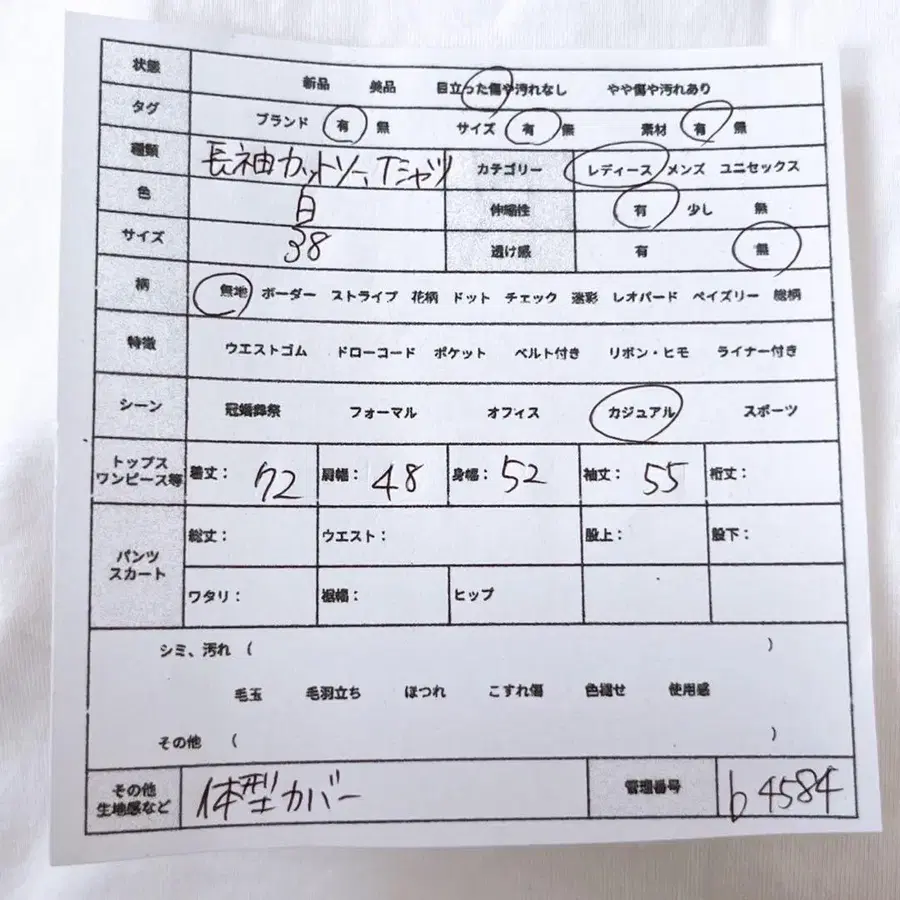 状態 新品 美品 目立った傷や汚れなし やや傷や汚れあり
タグ ブランド 有 無 サイズ 有 無 素材 有 無
種類 長袖カットソー、Tシャツ カテゴリー レディース メンズ ユニセックス
色 白 伸縮性 有 少し 無
サイズ 38 透け感 有 無
柄 無地 ボーダー ストライプ 花柄 ドット チェック 迷彩 レオパード ペイズリー 総柄
特徴 ウエストゴム ドローコード ポケット ベルト付き リボン・ヒモ ライナー付き
シーン 冠婚葬祭 フォーマル オフィス カジュアル スポーツ
トップス
ワンピース等 着丈: 72 肩幅: 48 身幅: 52 袖丈: 55 裄丈:
パンツ
スカート
総丈: ウエスト: 股上: 股下:
ワタリ: 裾幅: ヒップ
シミ、汚れ ( )
毛玉 毛羽立ち ほつれ こすれ傷 色褪せ 使用感
その他 ( )
その他
生地感など 体型カバー 管理番号 b4584